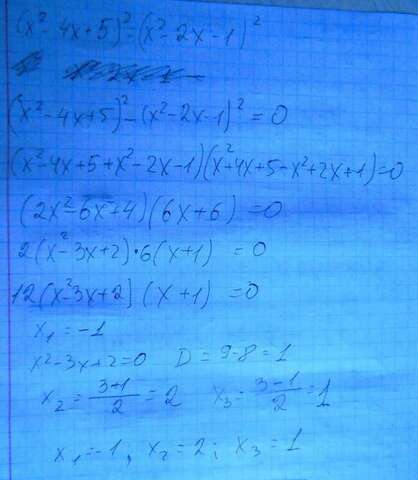 (x² - 4x + 5)² = (x² - 2x - 1)²
(x² - 4x + 5)² - (x² - 2x - 1)² = 0
(x² - 4x + 5 + x² - 2x - 1)(x² + 4x + 5 - x² + 2x + 1) = 0
(2x² - 6x + 4)(6x + 6) = 0
2(x² - 3x + 2) · 6(x + 1) = 0
12(x² 3x + 2](x + 1) = 0
x₁ = -1
x² - 3x + 2 = 0 D = 9 - 8 = 1
x₂ = (3+1)/2 = 2 x₃ = (3-1)/2 = 1
x₁ = -1; x₂ = 2; x₃ = 1